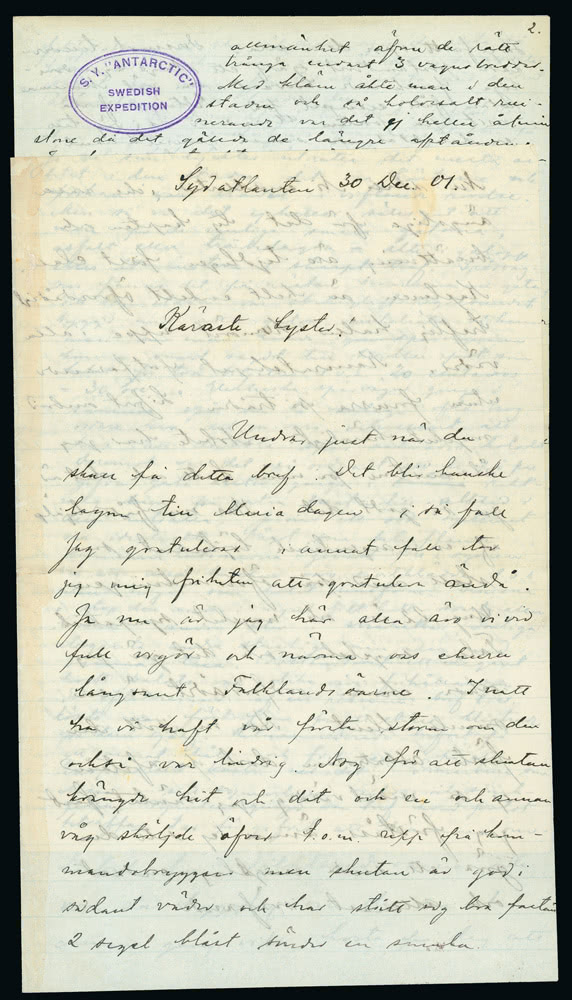 2.
allmänhet äfven de rätt
trånga endast 3 vagnsbredder.
Med kläm åkte man i den
staden och så kolossalt rui-
nerande var det ej heller åtmin
stone då det gällde de längre afstånden.
S.Y. "ANTARCTIC"
SWEDISH
EXPEDITION
Sydatlanten 30 Dec. 01.
Käraste Syster.
Undrar just när du
skall få detta bref. Det blir kanske
lagom till Maria dagen i så fall
jag gratulerar i annat fall tar
jag mig friheten att gratulera ändå.
Ja nu är jag här alla äro vi vid
full vigör och närma oss ehuru
långsamt Falklandsöarne. I natt
ha vi haft vår första storm om den
också var lindrig. Nog för att skutan
krängde hit och dit och en och annan
våg sköljde öfver t.o.m. upp från kom-
mandobryggan men skutan är god i
sådant väder och har skött sig bra fastän
2 segel blåst sönder en smula.